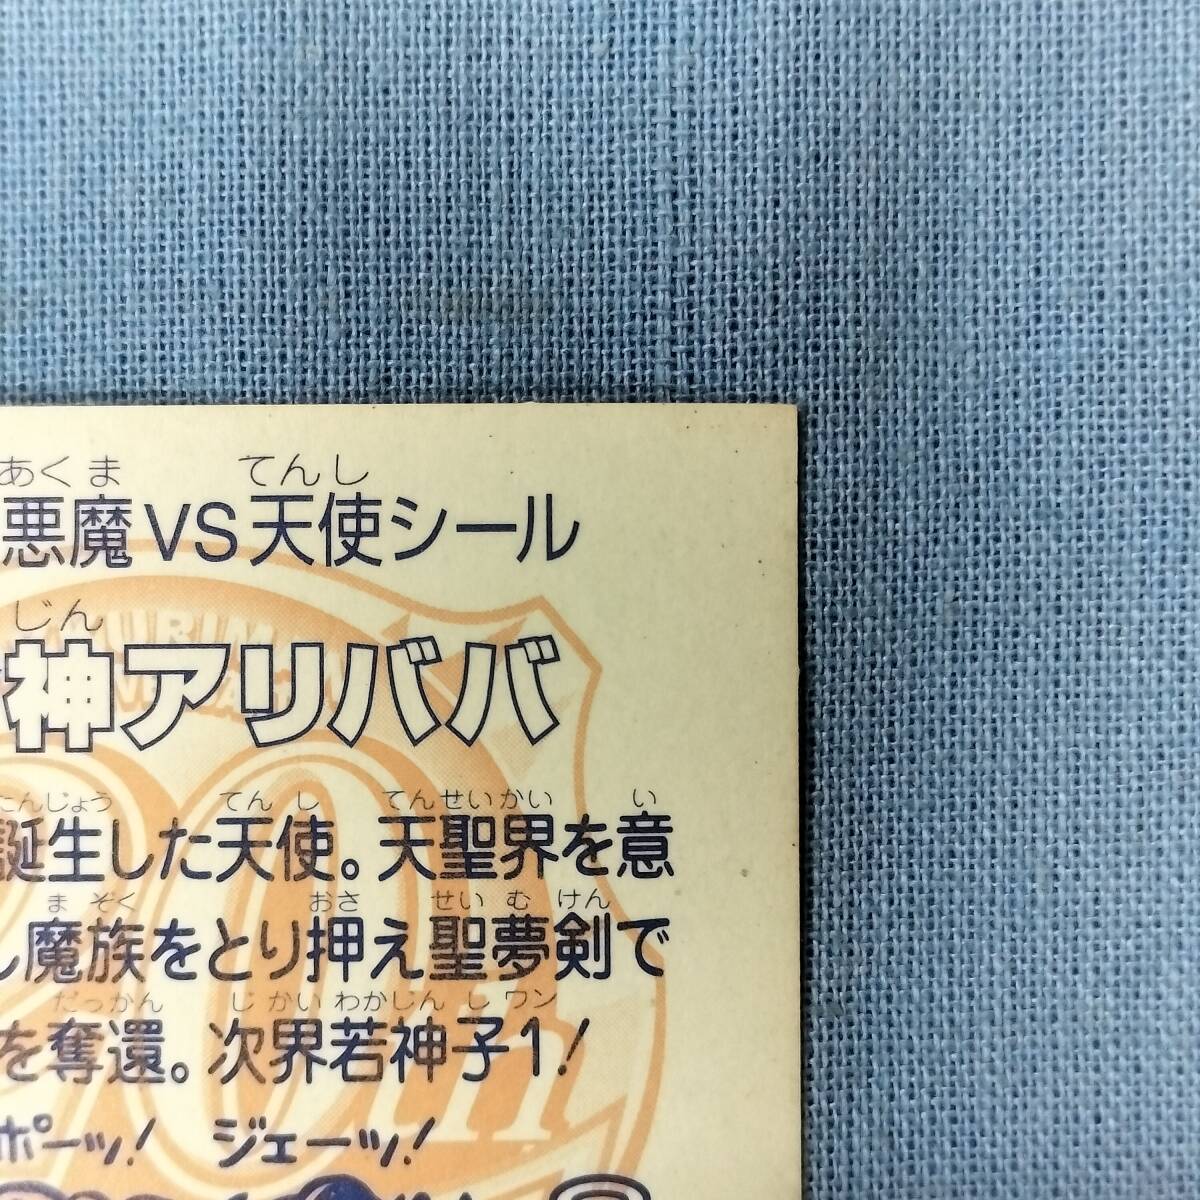 あくま てんし
悪魔VS天使シール
じん
神アリババ
たんじょう てんし てんせいかい い
誕生した天使。天聖界を意
まぞく おさ せいむけん
し魔族をとり押え聖夢剣で
だっかん じかいわかじんしワン
を奪還。次界若神子1!
ポーッ! ジェーッ!